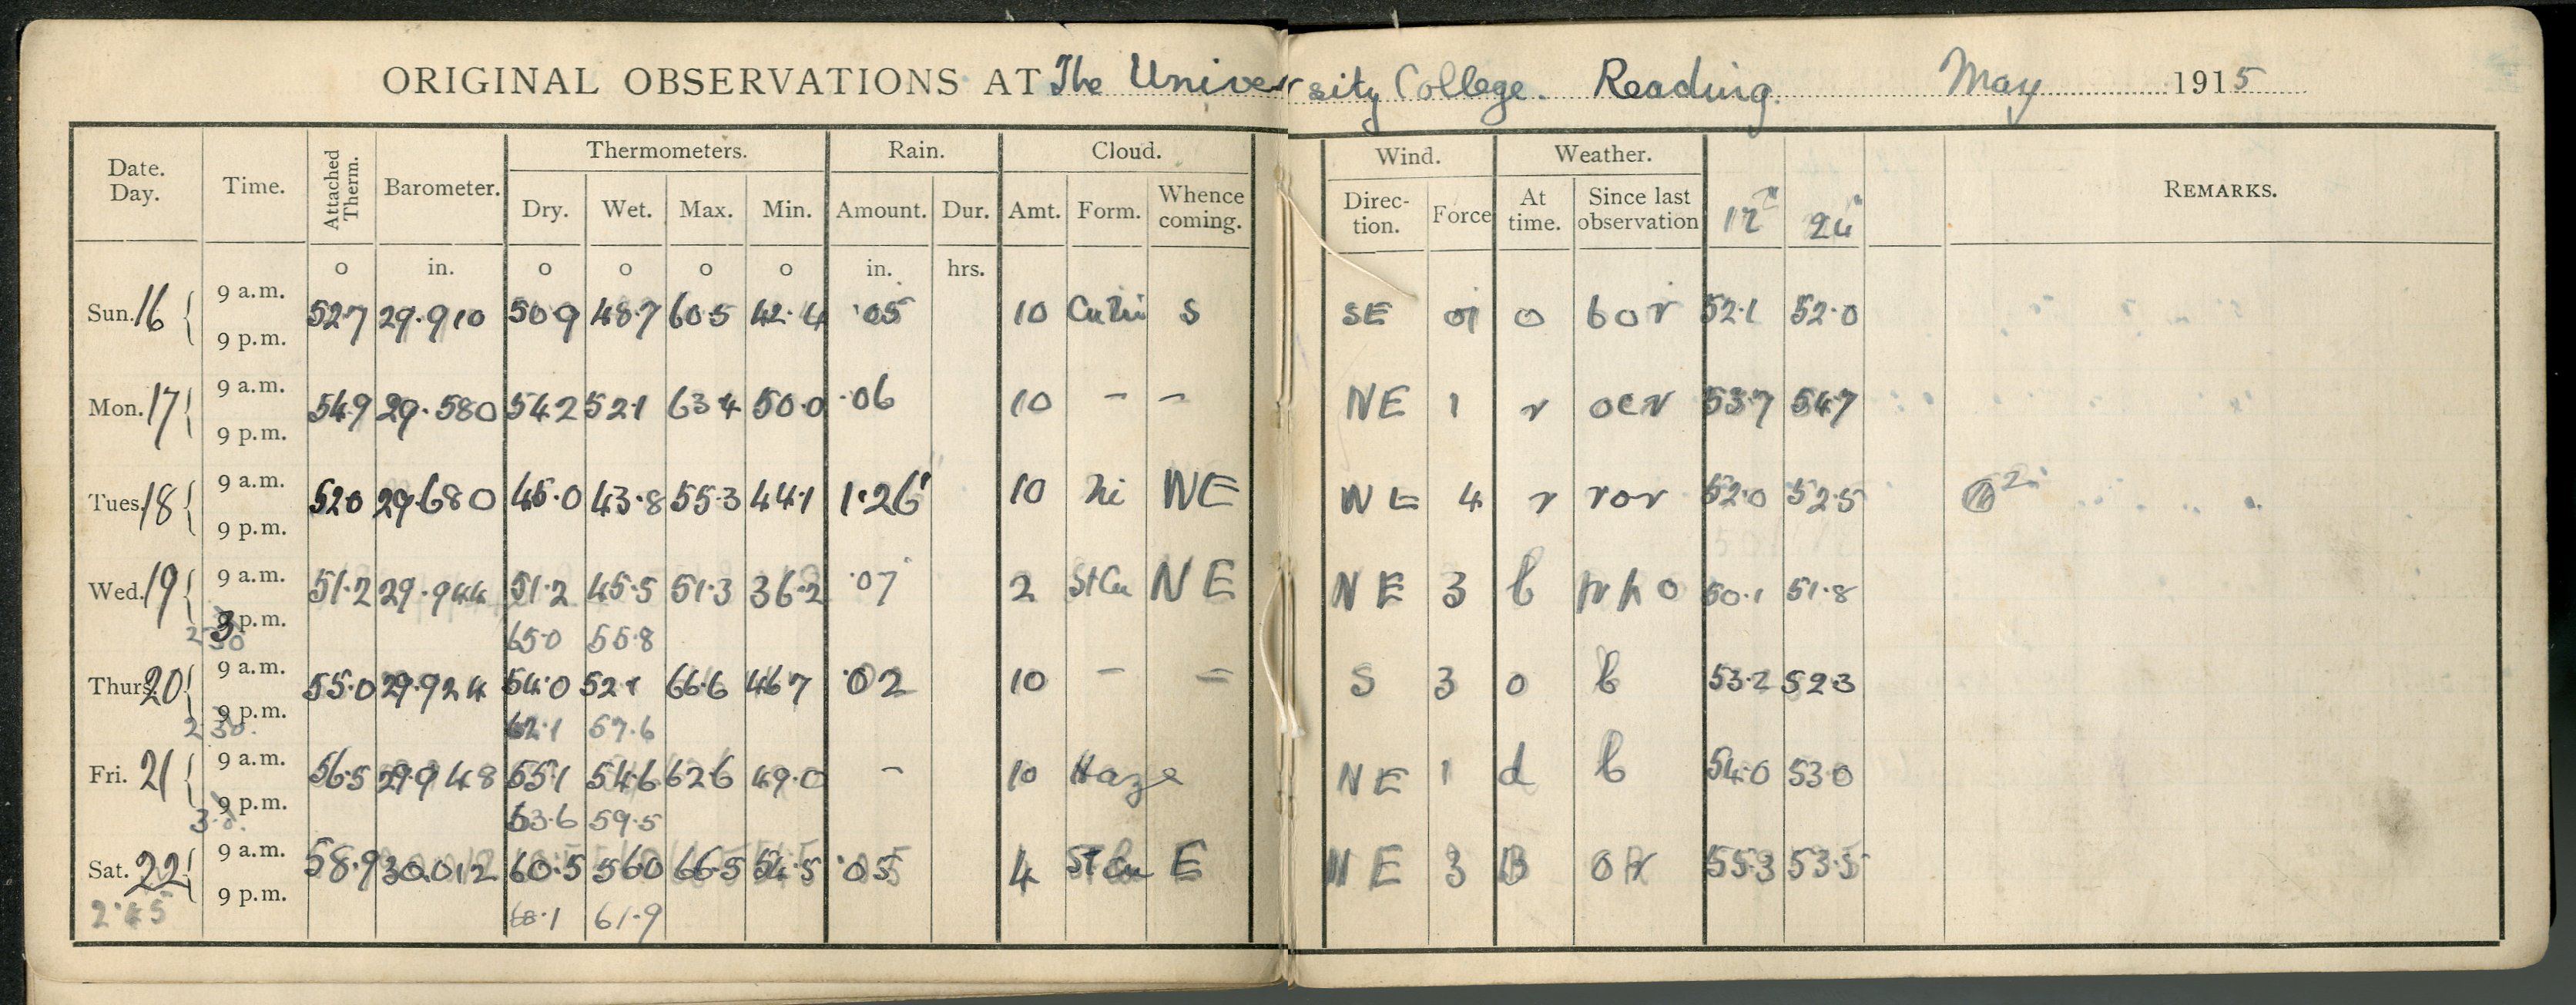 ORIGINAL OBSERVATIONS AT The University College. Reading. May 1915
Date. Day. Time. Attached Therm. Barometer. Thermometers. Rain. Cloud. Wind. Weather. REMARKS.
Dry. Wet. Max. Min. Amount. Dur. Amt. Form. Whence coming. Direc- tion. Force At time. Since last observation 12" 24"
o in. o o o o in. hrs.
Sun. 16 9 a.m. 52.7 29.910 50.9 48.7 60.5 42.4 .05 10 CuNi S SE o bor 52.1 52.0
9 p.m.
Mon. 17 9 a.m. 54.9 29.580 54.2 52.1 63.4 50.0 .06 10 – – NE 1 r ocr 53.7 54.7
9 p.m.
Tues. 18 9 a.m. 52.0 29.680 45.0 43.8 55.3 44.1 1.26 10 Ni NE NE 4 r ror 52.0 52.5
9 p.m.
Wed. 19 9 a.m. 51.2 29.944 51.2 45.5 51.3 36.2 .07 2 StCu NE NE 3 b 50.1 51.8
9 p.m. 65.0 55.8
Thurs. 20 9 a.m. 55.0 29.924 54.0 52.1 66.6 46.7 .02 10 – – S 3 o b 53.2 52.3
2.30. 9 p.m. 62.1 57.6
Fri. 21 9 a.m. 56.5 29.948 55.1 54.6 62.6 49.0 – 10 Haze NE 1 d b 54.0 53.0
3.0. 9 p.m. 63.6 59.5
Sat. 22 9 a.m. 58.9 30.012 60.5 56.0 66.5 54.5 .05 4 StCu E NE 3 B or 55.3 53.5
2.45 9 p.m. 68.1 61.9